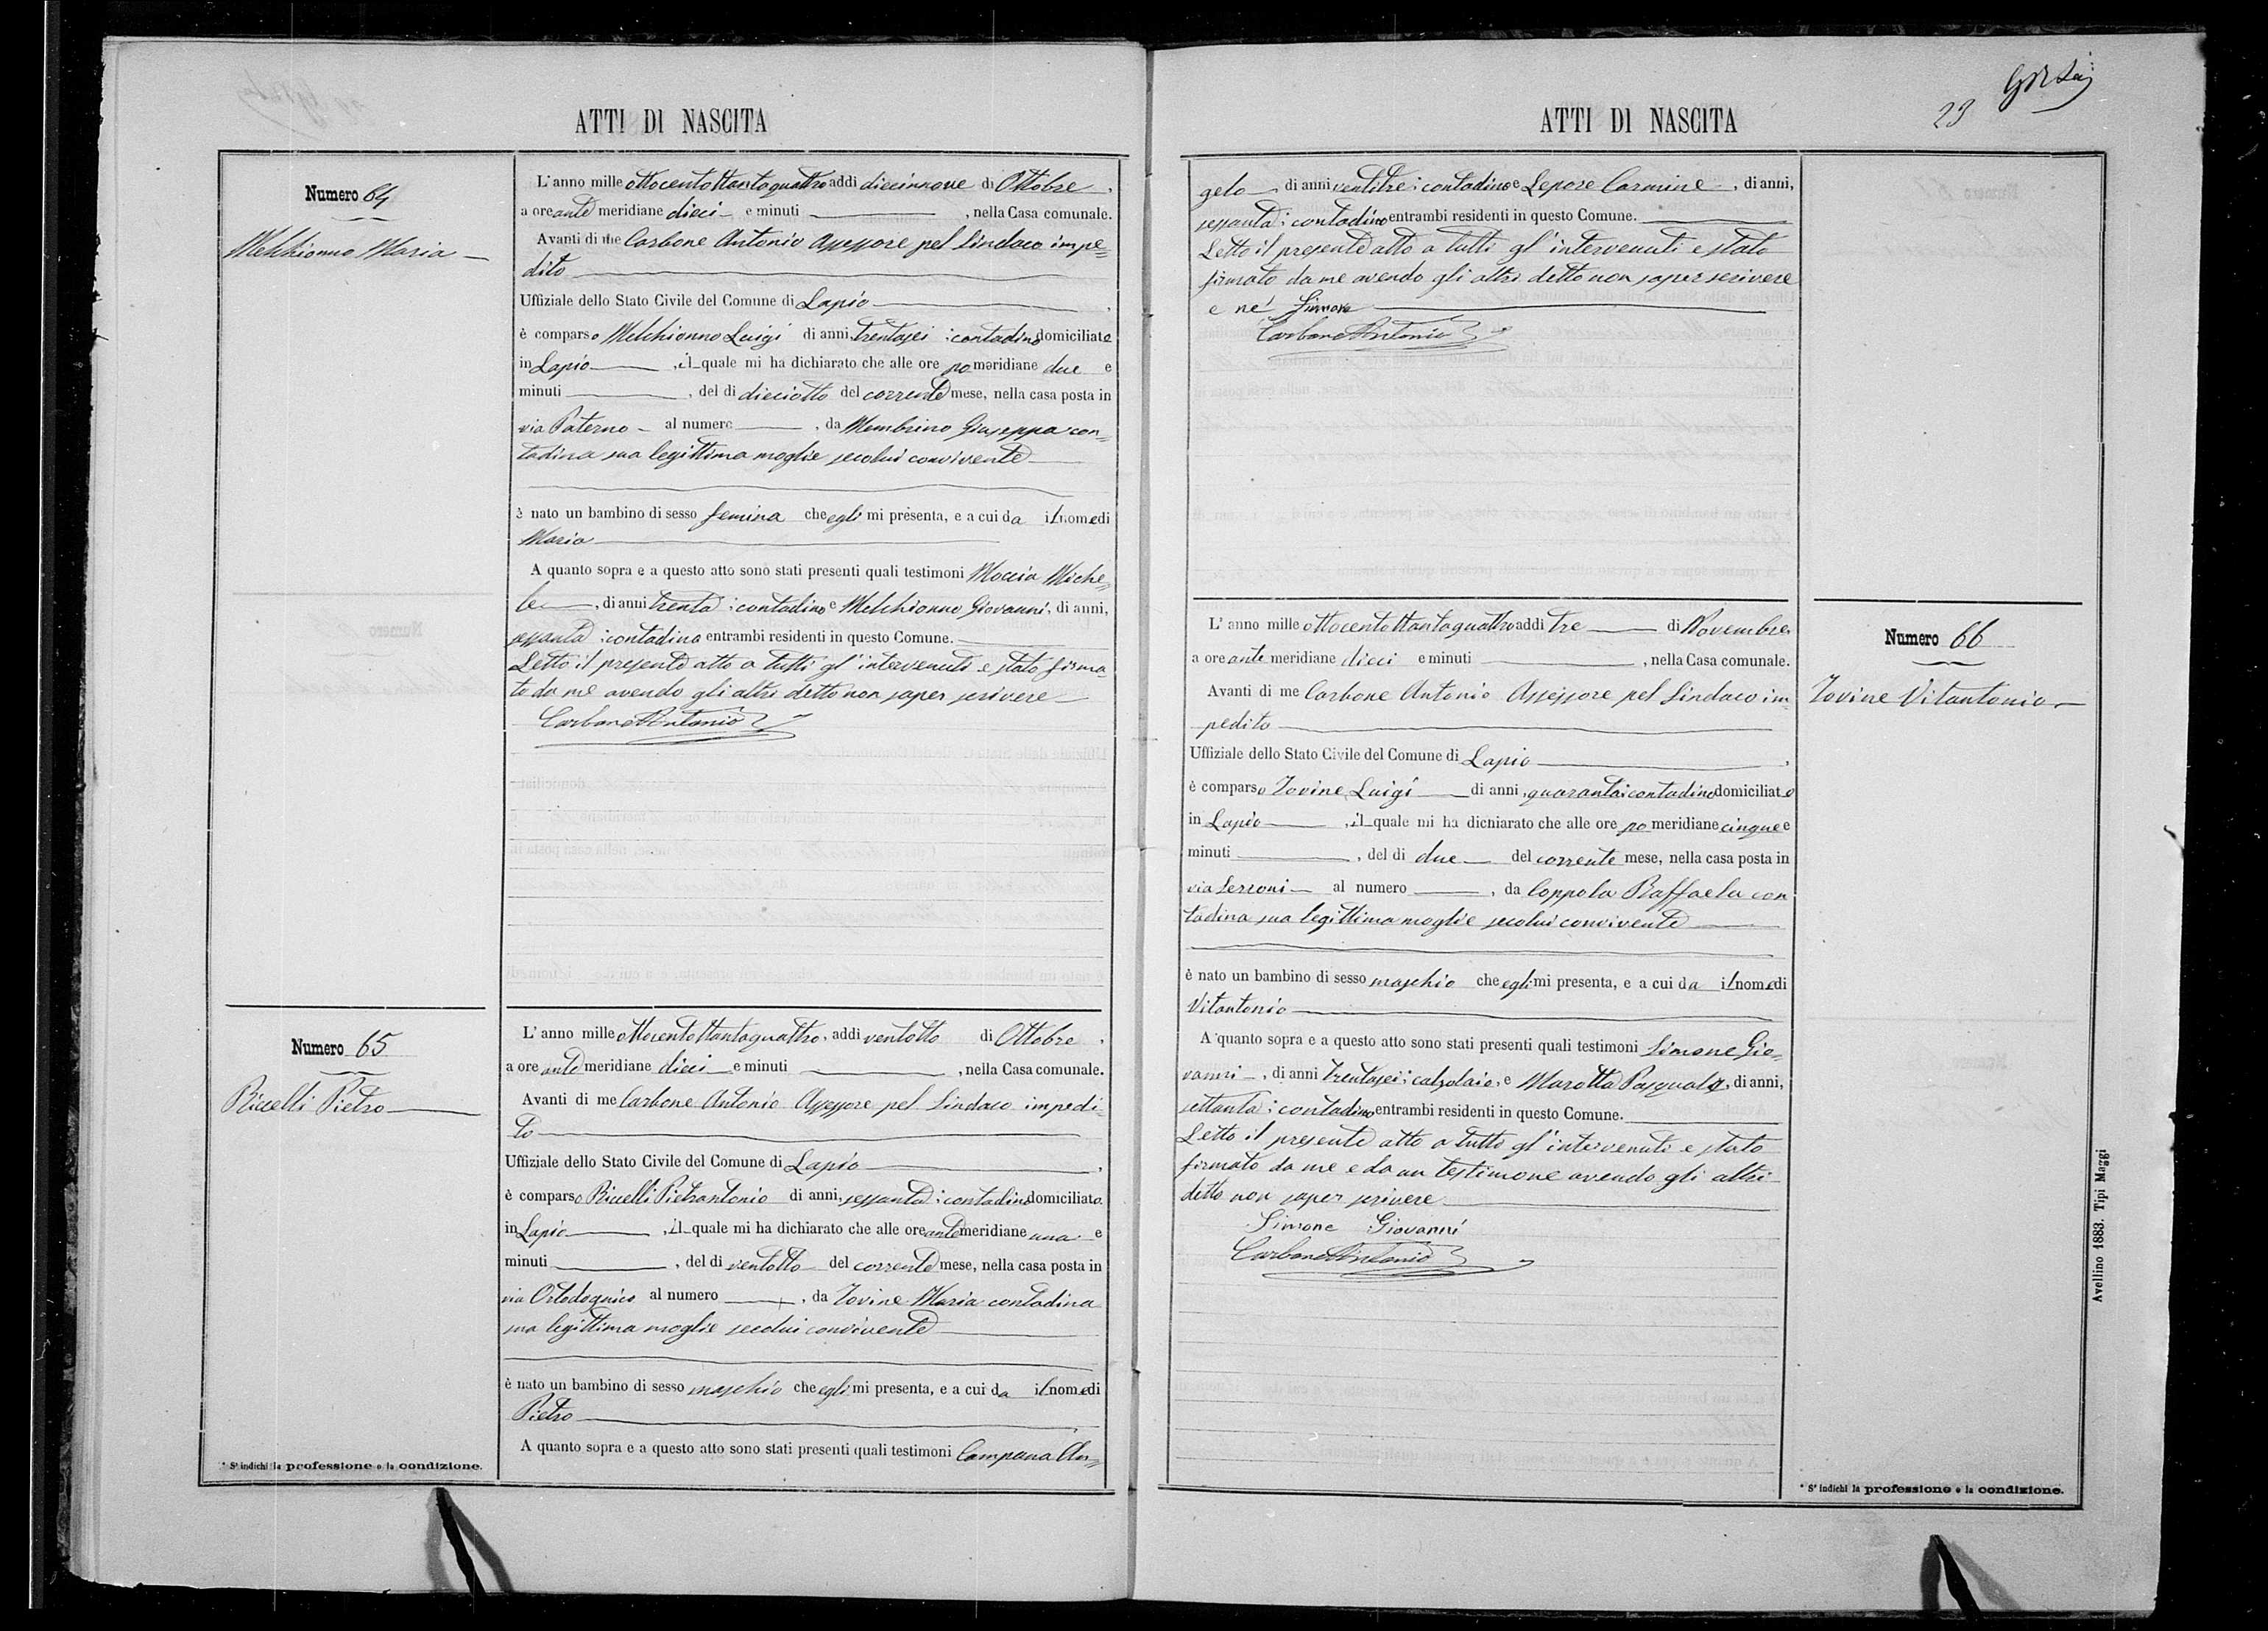 ATTI DI NASCITA
Numero 64
Melchionno Maria
L'anno mille ottocentottantaquattro addi diecinnove di Ottobre,
a ore ante meridiane dieci e minuti , nella Casa comunale.
Avanti di me Carbone Antonio Assessore pel Sindaco impe=
dito
Uffiziale dello Stato Civile del Comune di Lapio
è comparso Melchionno Luigi di anni, trentasei; contadino domiciliato
in Lapio , il quale mi ha dichiarato che alle ore po meridiane due e
minuti , del di dieciotto del corrente mese, nella casa posta in
via Paterno al numero , da Membrino Giuseppa con=
tadina sua legittima moglie secolui convivente
è nato un bambino di sesso femina che egli mi presenta, e a cui da il nome di
Maria
A quanto sopra e a questo atto sono stati presenti quali testimoni Moccia Miche=
le , di anni trenta; contadino e Melchionno Giovanni, di anni,
sessanta; contadino entrambi residenti in questo Comune.
Letto il presente atto a tutti gl'intervenuti e stato firma=
to da me avendo gli altri detto non saper scrivere
Carbone Antonio
Numero 65
Riccelli Pietro
L'anno mille ottocentottantaquattro, addi ventotto di Ottobre,
a ore ante meridiane dieci e minuti , nella Casa comunale.
Avanti di me Carbone Antonio Assessore pel Sindaco impedi=
to
Uffiziale dello Stato Civile del Comune di Lapio ,
è comparso Riccelli Pietrantonio di anni, sessanta; contadino domiciliato
in Lapio , il quale mi ha dichiarato che alle ore ante meridiane una e
minuti , del di ventotto del corrente mese, nella casa posta in
via Ortodognico al numero , da Iovine Maria contadina
sua legittima moglie secolui convivente
è nato un bambino di sesso maschio che egli mi presenta, e a cui da il nome di
Pietro
A quanto sopra e a questo atto sono stati presenti quali testimoni Campana An=
* S' indichi la professione o la condizione.
ATTI DI NASCITA
23
gelo , di anni ventitre; contadino e Lepore Carmine , di anni,
sessanta; contadino entrambi residenti in questo Comune.
Letto il presente atto a tutti gl'intervenuti e stato
firmato da me avendo gli altri detto non saper scrivere
e nè
Carbone Antonio
Numero 66
Iovine Vitantonio
L'anno mille ottocentottantaquattro addi tre di Novembre,
a ore ante meridiane dieci e minuti , nella Casa comunale.
Avanti di me Carbone Antonio Assessore pel Sindaco im=
pedito
Uffiziale dello Stato Civile del Comune di Lapio ,
è comparso Iovine Luigi di anni, quaranta; contadino domiciliato
in Lapio , il quale mi ha dichiarato che alle ore po meridiane cinque e
minuti , del di due del corrente mese, nella casa posta in
via Serroni al numero , da Coppola Raffaela con
tadina sua legittima moglie secolui convivente
è nato un bambino di sesso maschio che egli mi presenta, e a cui da il nome di
Vitantonio
A quanto sopra e a questo atto sono stati presenti quali testimoni Simone Gio=
vanni , di anni trentasei; calzolaio, e Marotta Pasquale, di anni,
settanta; contadino entrambi residenti in questo Comune.
Letto il presente atto a tutti gl'intervenuti e stato
firmato da me e da un testimone avendo gli altri
detto non saper scrivere
Simone Giovanni
Carbone Antonio
* S' indichi la professione o la condizione.
Avellino 1883. Tipi Maggi